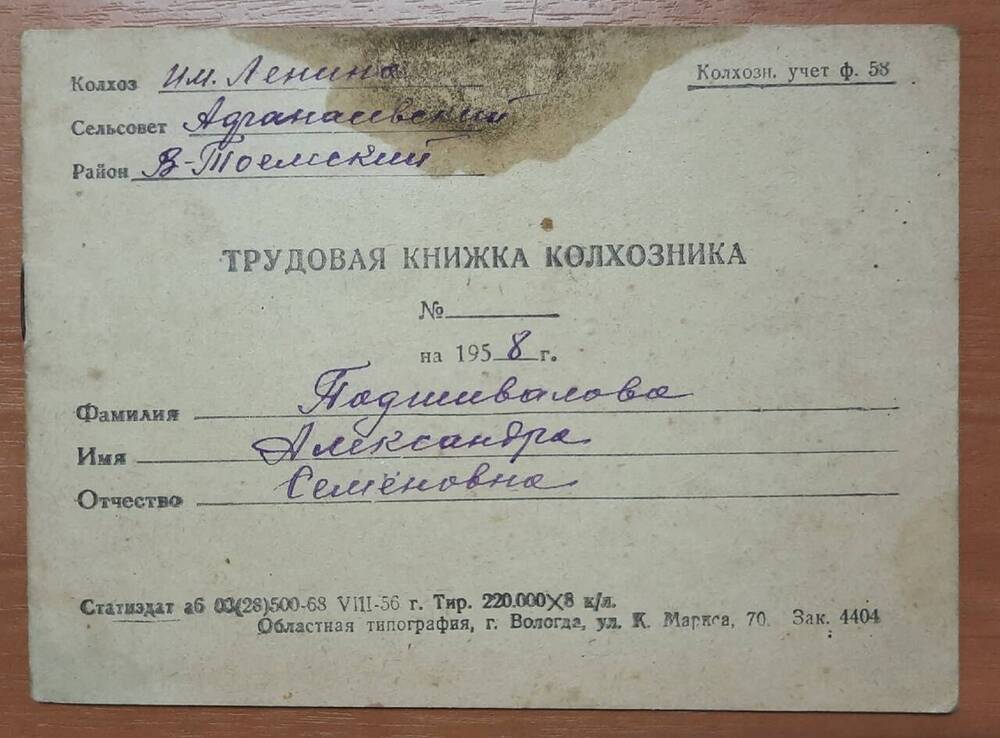 Колхоз им. Ленина
Колхозн. учет ф. 58
Сельсовет Афанасьевский
Район В-Тоемский
ТРУДОВАЯ КНИЖКА КОЛХОЗНИКА
№
на 1958 г.
Фамилия Подшивалова
Имя Александра
Отчество Семёновна
Статиздат аб 03(28)500-68 VIII-56 г. Тир. 220.000×8 к/л.
Областная типография, г. Вологда, ул. К. Маркса, 70. Зак. 4404